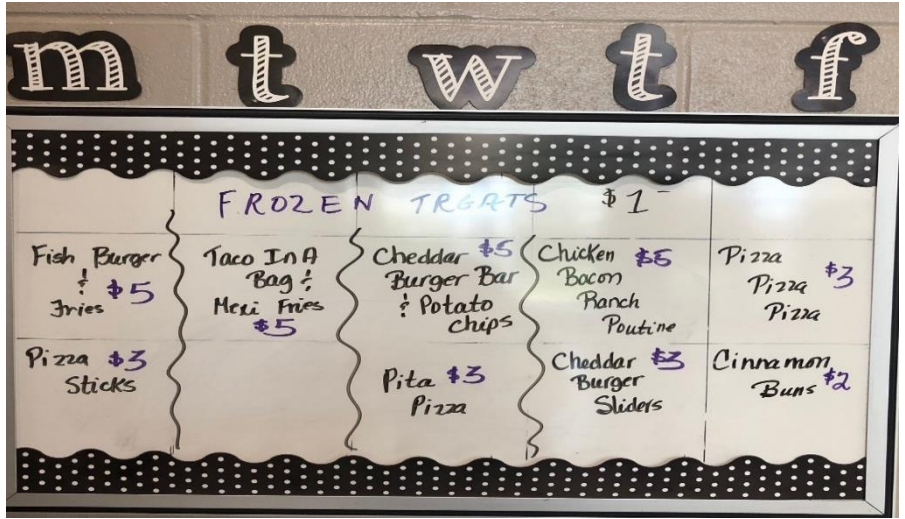 m t w t f
FROZEN TREATS $1
Fish Burger
& $5
Fries
Pizza $3
Sticks
Taco In A
Bag &
Mexi Fries
$5
Cheddar $5
Burger Bar
& Potato
Chips
Pita $3
Pizza
Chicken $5
Bacon
Ranch
Poutine
Cheddar $3
Burger
Sliders
Pizza
Pizza $3
Pizza
Cinnamon
Buns $2